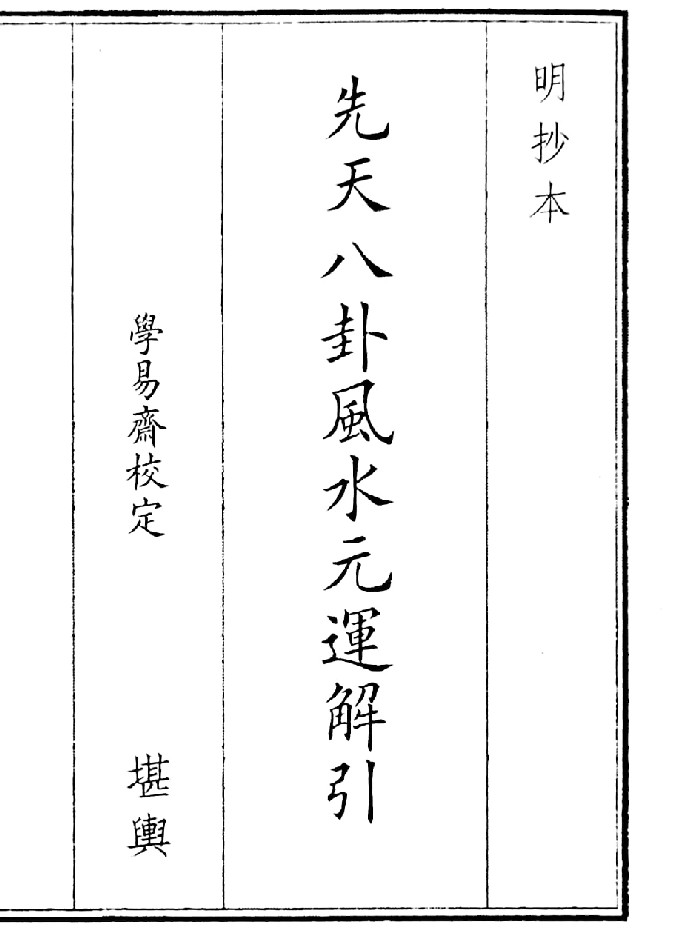 明抄本
先天八卦風水元運解引
學易齋校定
堪輿